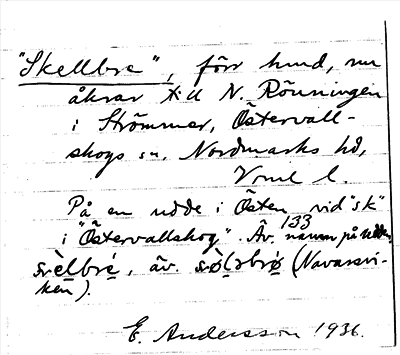 "Skellbre", förr hund, nu
åkrar till N. Rönningen
i Strömmer, Östervall-
skogs sn, Nordmarks hd,
Vrml l.
På en udde i Östen vid "sk"
i "Östervallskog". Äv. namn på udden
133
svèlbré, äv. (Navarsvi-
ken).
E. Andersson 1936.